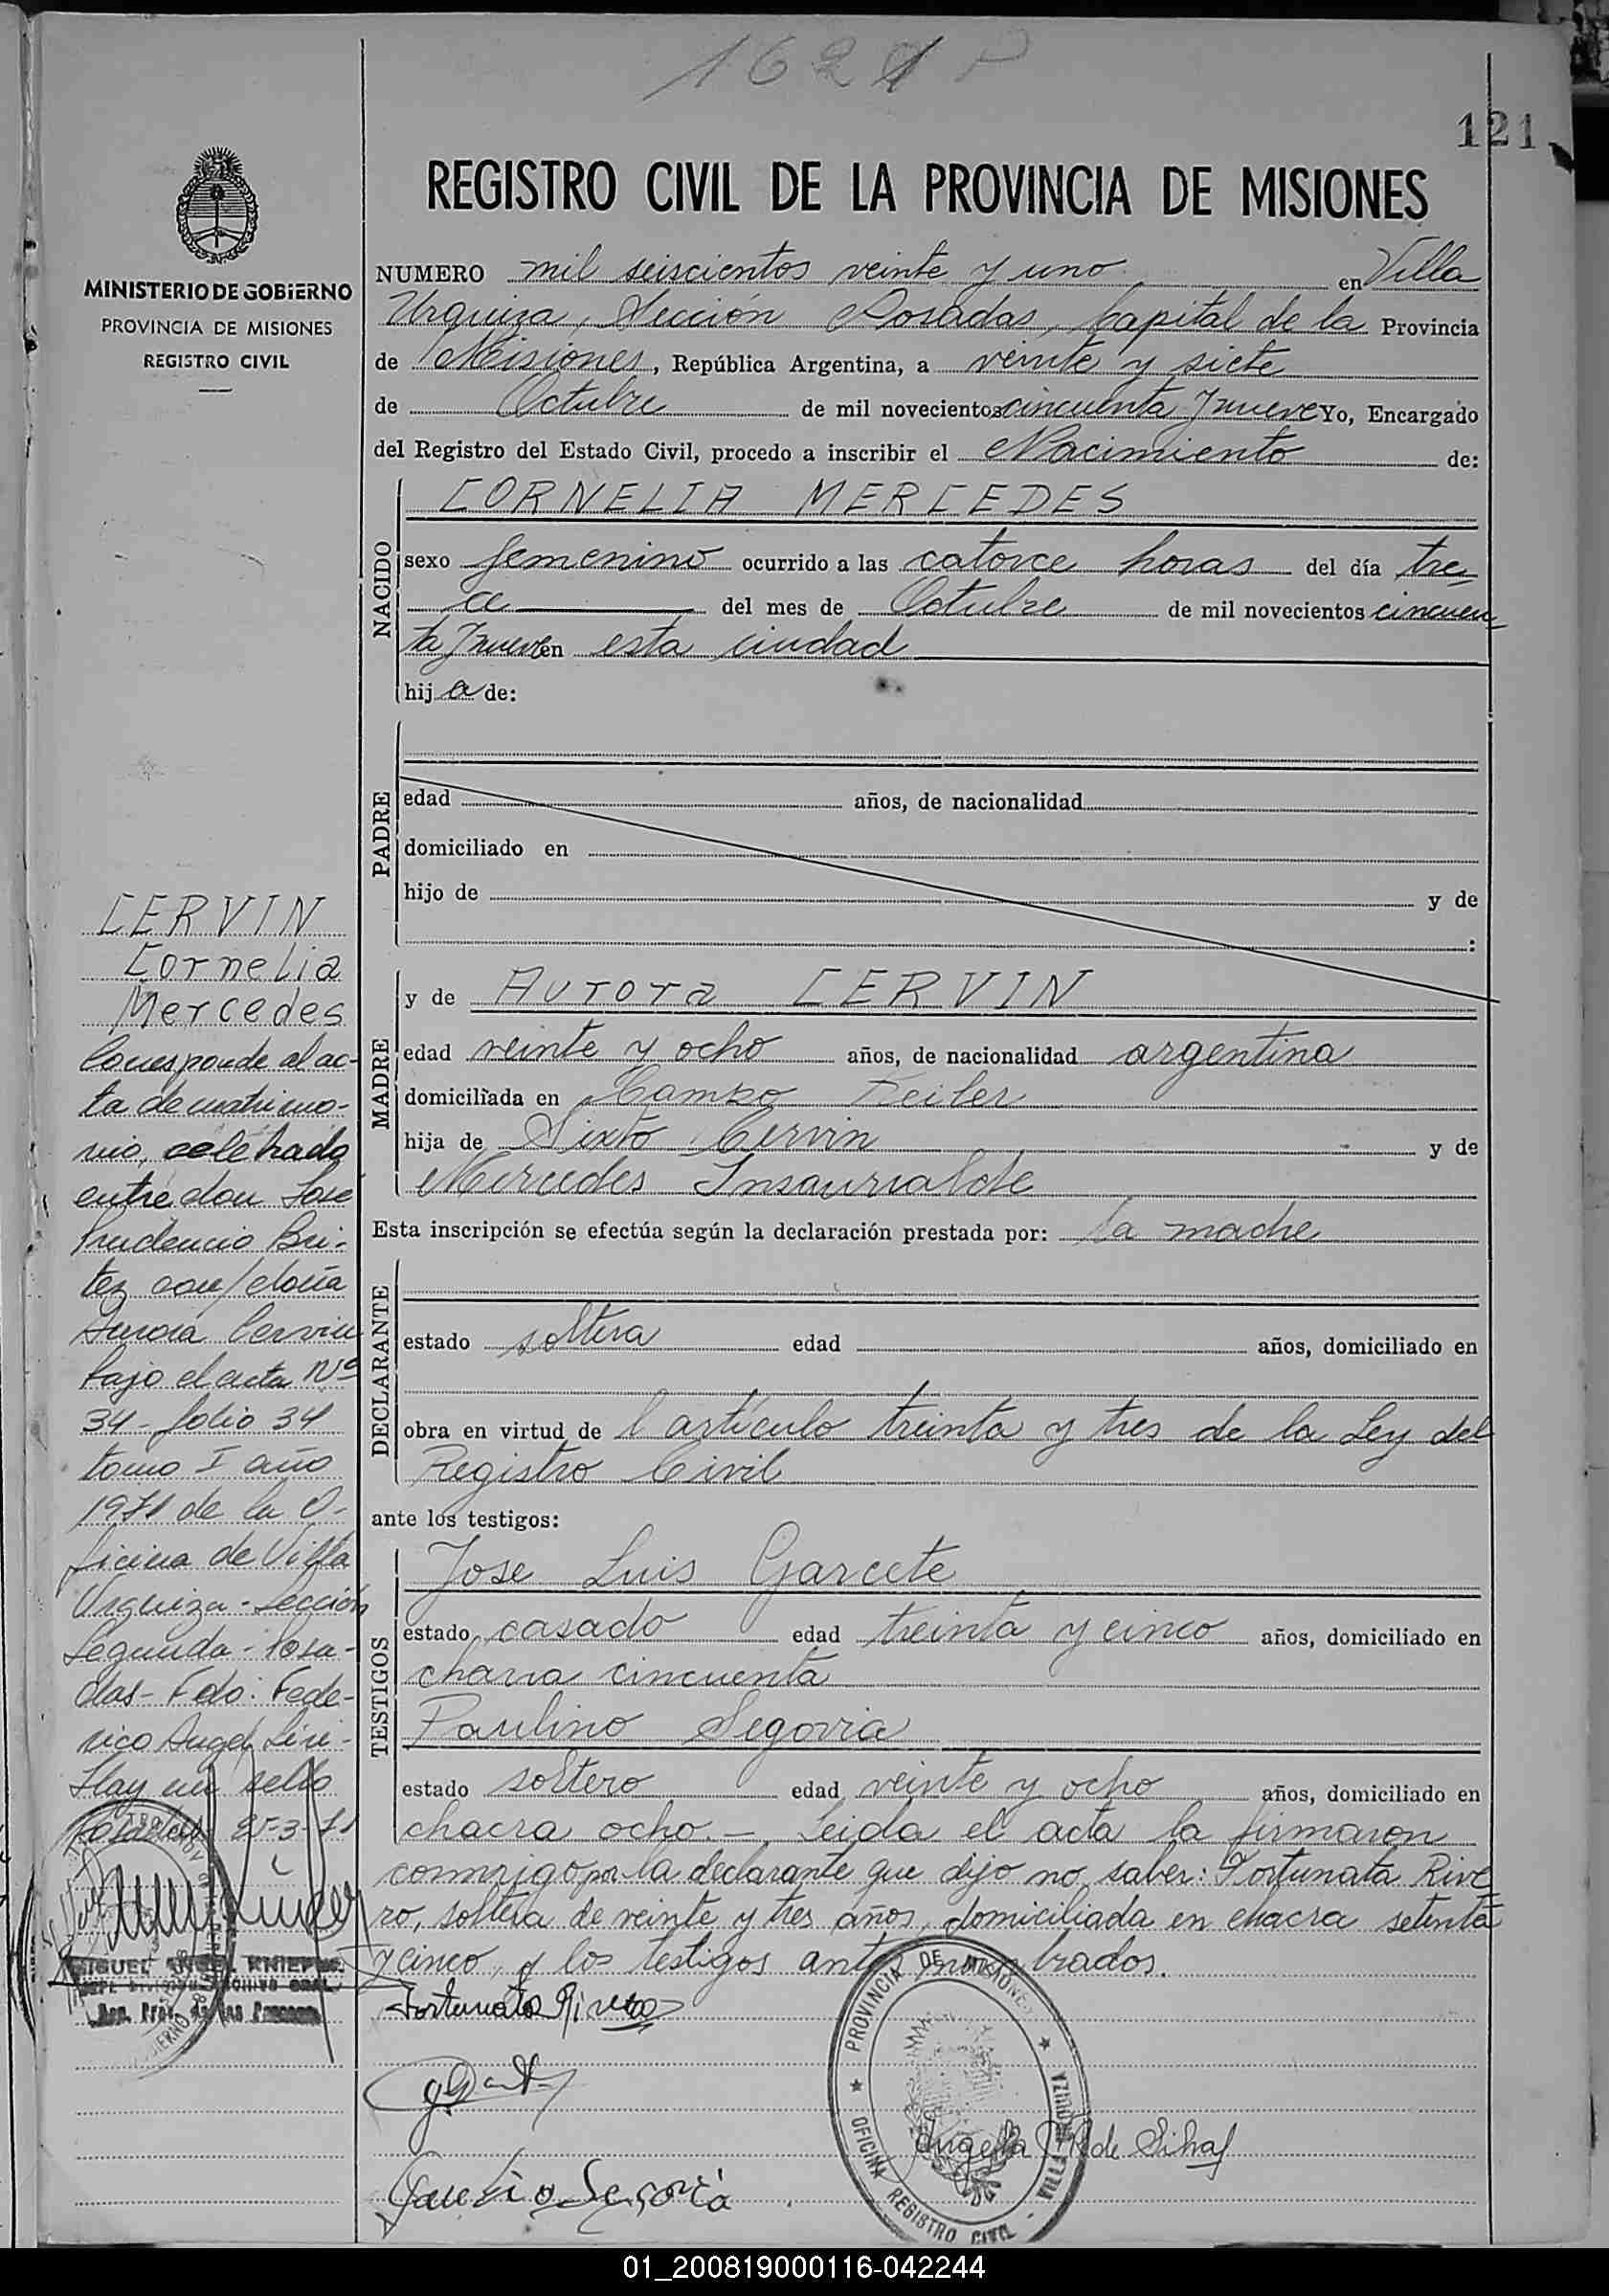 1621 P
121
REGISTRO CIVIL DE LA PROVINCIA DE MISIONES
MINISTERIO DE GOBIERNO
PROVINCIA DE MISIONES
REGISTRO CIVIL
NUMERO mil seiscientos veinte y uno en Villa
Urquiza, Sección Posadas, Capital de la Provincia
de Misiones, República Argentina, a veinte y siete
de Octubre de mil novecientos cincuenta y nueve Yo, Encargado
del Registro del Estado Civil, procedo a inscribir el Nacimiento de:
NACIDO
CORNELIA MERCEDES
sexo femenino ocurrido a las catorce horas del día tre-
ce del mes de Octubre de mil novecientos cincuen-
ta y nueve en esta ciudad
hija de:
PADRE
edad años, de nacionalidad
domiciliado en
hijo de y de
:
MADRE
y de Aurora CERVIN
edad veinte y ocho años, de nacionalidad argentina
domiciliada en Campo
hija de Sixto Cervin y de
Mercedes Insaurralde
Esta inscripción se efectúa según la declaración prestada por: la madre
DECLARANTE
estado soltera edad años, domiciliado en
obra en virtud del artículo treinta y tres de la Ley del
Registro Civil
ante los testigos:
TESTIGOS
Jose Luis Garcete
estado casado edad treinta y cinco años, domiciliado en
chacra cincuenta
Paulino Segovia
estado soltero edad veinte y ocho años, domiciliado en
chacra ocho.- Leida el acta la firmaron
conmigo por la declarante que dijo no saber: Fortunata Rive-
ro, soltera de veinte y tres años, domiciliada en chacra setenta
y cinco, y los testigos antes nombrados.
Fortunata Rivero
Paulino Segovia
Angela R de
PROVINCIA DE MISIONES
OFICINA REGISTRO CIVIL - VILLA URQUIZA
CERVIN
Cornelia
Mercedes
Corresponde al ac-
ta de matrimo-
nio, celebrado
entre don Jose
Prudencio Bri-
tez con/doña
Aurora Cervin
bajo el acta Nº
34 - folio 34
tomo I año
1971 de la O-
ficina de Villa
Urquiza - Sección
Segunda - Posa-
das - Fdo: Fede-
rico Angel
Hay un sello
Posadas
MIGUEL ANGEL
01_200819000116-042244